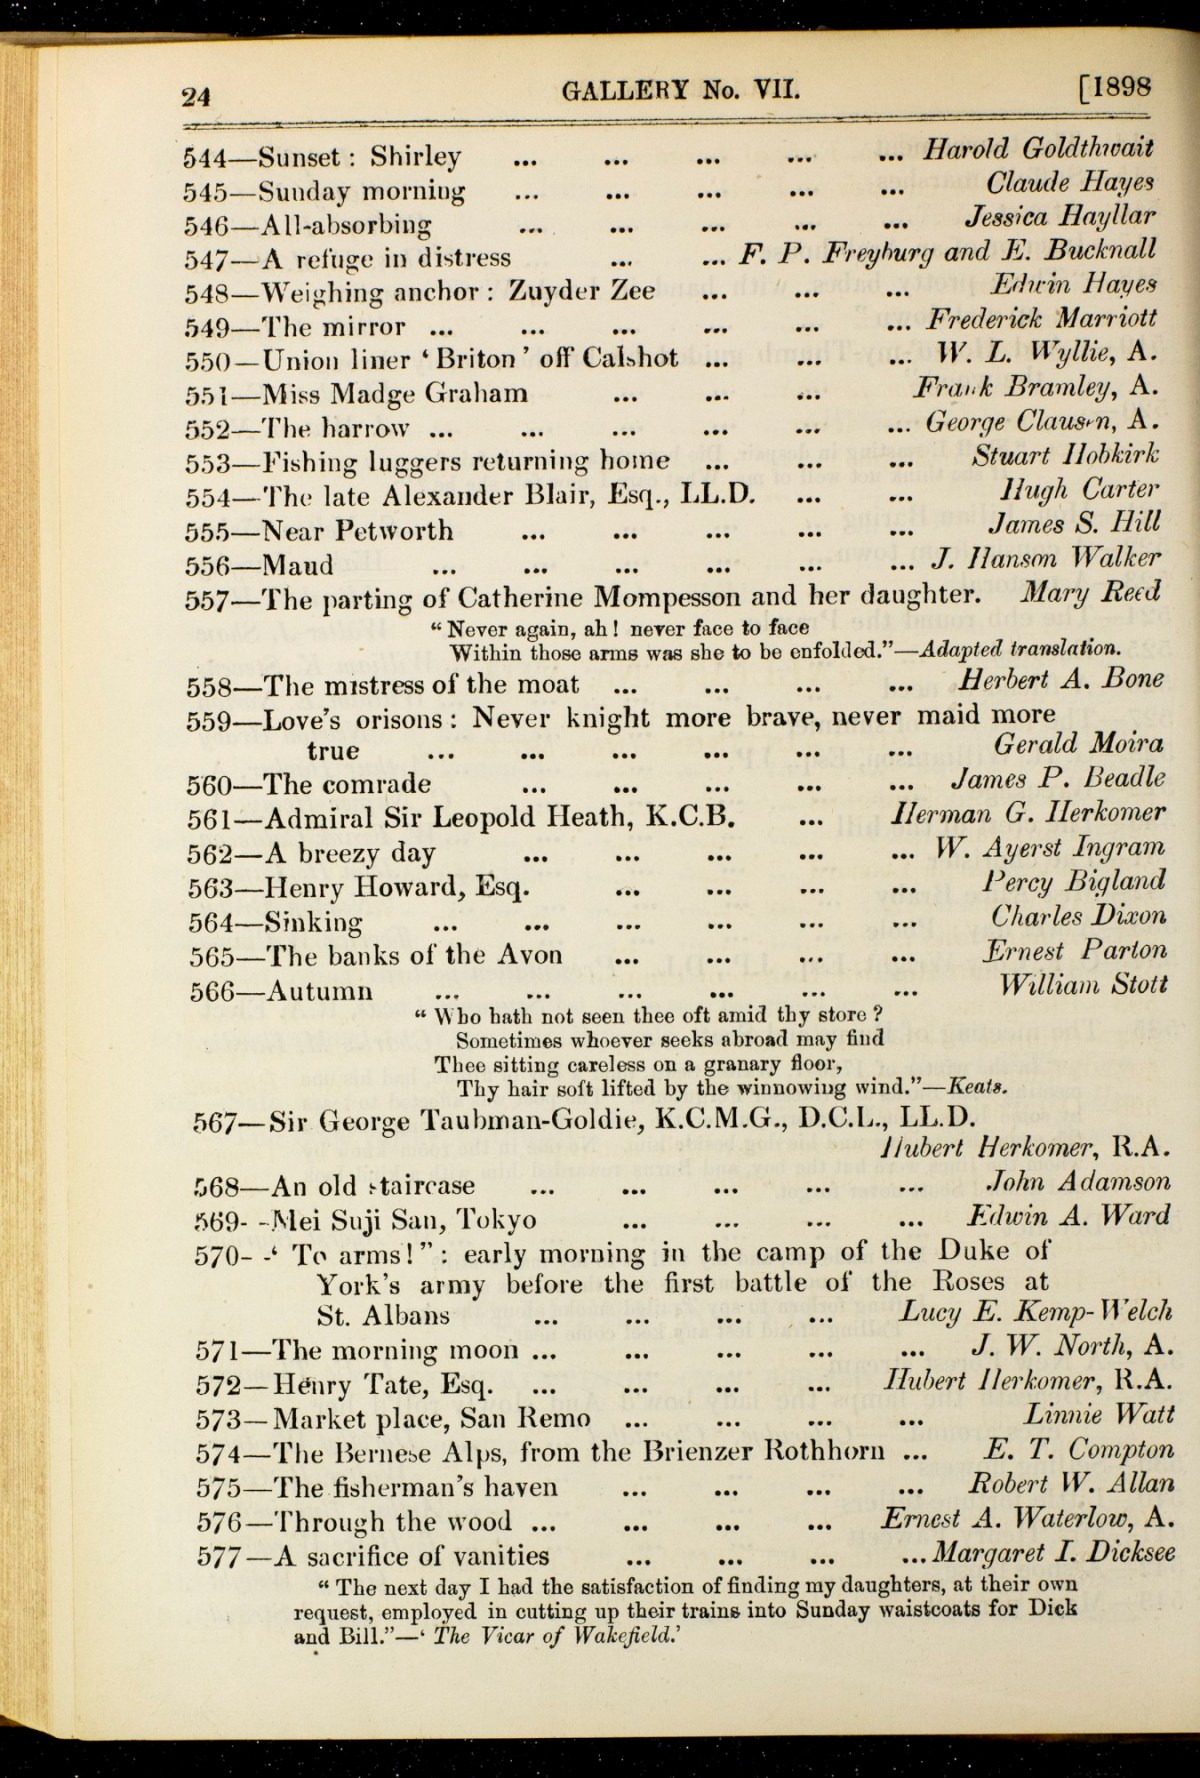 24 GALLERY No. VII. [1898
544—Sunset : Shirley ... ... ... ... ... Harold Goldthwait
545—Sunday morning ... ... ... ... ... Claude Hayes
546—All-absorbing ... ... ... ... ... Jessica Hayllar
547—A refuge in distress ... ... F. P. Freyburg and E. Bucknall
548—Weighing anchor : Zuyder Zee ... ... ... Edwin Hayes
549—The mirror ... ... ... ... ... ... Frederick Marriott
550—Union liner ‘ Briton ’ off Calshot ... ... ... W. L. Wyllie, A.
551—Miss Madge Graham ... ... ... Frank Bramley, A.
552—The harrow ... ... ... ... ... ... George Clausen, A.
553—Fishing luggers returning home ... ... ... Stuart Hobkirk
554—The late Alexander Blair, Esq., LL.D. ... ... Hugh Carter
555—Near Petworth ... ... ... ... ... James S. Hill
556—Maud ... ... ... ... ... ... J. Hanson Walker
557—The parting of Catherine Mompesson and her daughter. Mary Reed
“ Never again, ah ! never face to face
Within those arms was she to be enfolded.”—Adapted translation.
558—The mistress of the moat ... ... ... ... Herbert A. Bone
559—Love’s orisons : Never knight more brave, never maid more
true ... ... ... ... ... ... Gerald Moira
560—The comrade ... ... ... ... ... James P. Beadle
561—Admiral Sir Leopold Heath, K.C.B. ... Herman G. Herkomer
562—A breezy day ... ... ... ... ... W. Ayerst Ingram
563—Henry Howard, Esq. ... ... ... ... Percy Bigland
564—Sinking ... ... ... ... ... ... Charles Dixon
565—The banks of the Avon ... ... ... ... Ernest Parton
566—Autumn ... ... ... ... ... ... William Stott
“ Who hath not seen thee oft amid thy store ?
Sometimes whoever seeks abroad may find
Thee sitting careless on a granary floor,
Thy hair soft lifted by the winnowing wind.”—Keats.
567—Sir George Taubman-Goldie, K.C.M.G., D.C.L., LL.D.
Hubert Herkomer, R.A.
568—An old staircase ... ... ... ... ... John Adamson
569--Mei Suji San, Tokyo ... ... ... ... Edwin A. Ward
570--‘ To arms ! ” : early morning in the camp of the Duke of
York’s army before the first battle of the Roses at
St. Albans ... ... ... ... Lucy E. Kemp-Welch
571—The morning moon ... ... ... ... ... J. W. North, A.
572—Henry Tate, Esq. ... ... ... ... Hubert Herkomer, R.A.
573—Market place, San Remo ... ... ... ... Linnie Watt
574—The Bernese Alps, from the Brienzer Rothhorn ... E. T. Compton
575—The fisherman’s haven ... ... ... ... Robert W. Allan
576—Through the wood ... ... ... ... Ernest A. Waterlow, A.
577—A sacrifice of vanities ... ... ... ... Margaret I. Dicksee
“ The next day I had the satisfaction of finding my daughters, at their own
request, employed in cutting up their trains into Sunday waistcoats for Dick
and Bill.”—‘ The Vicar of Wakefield.’